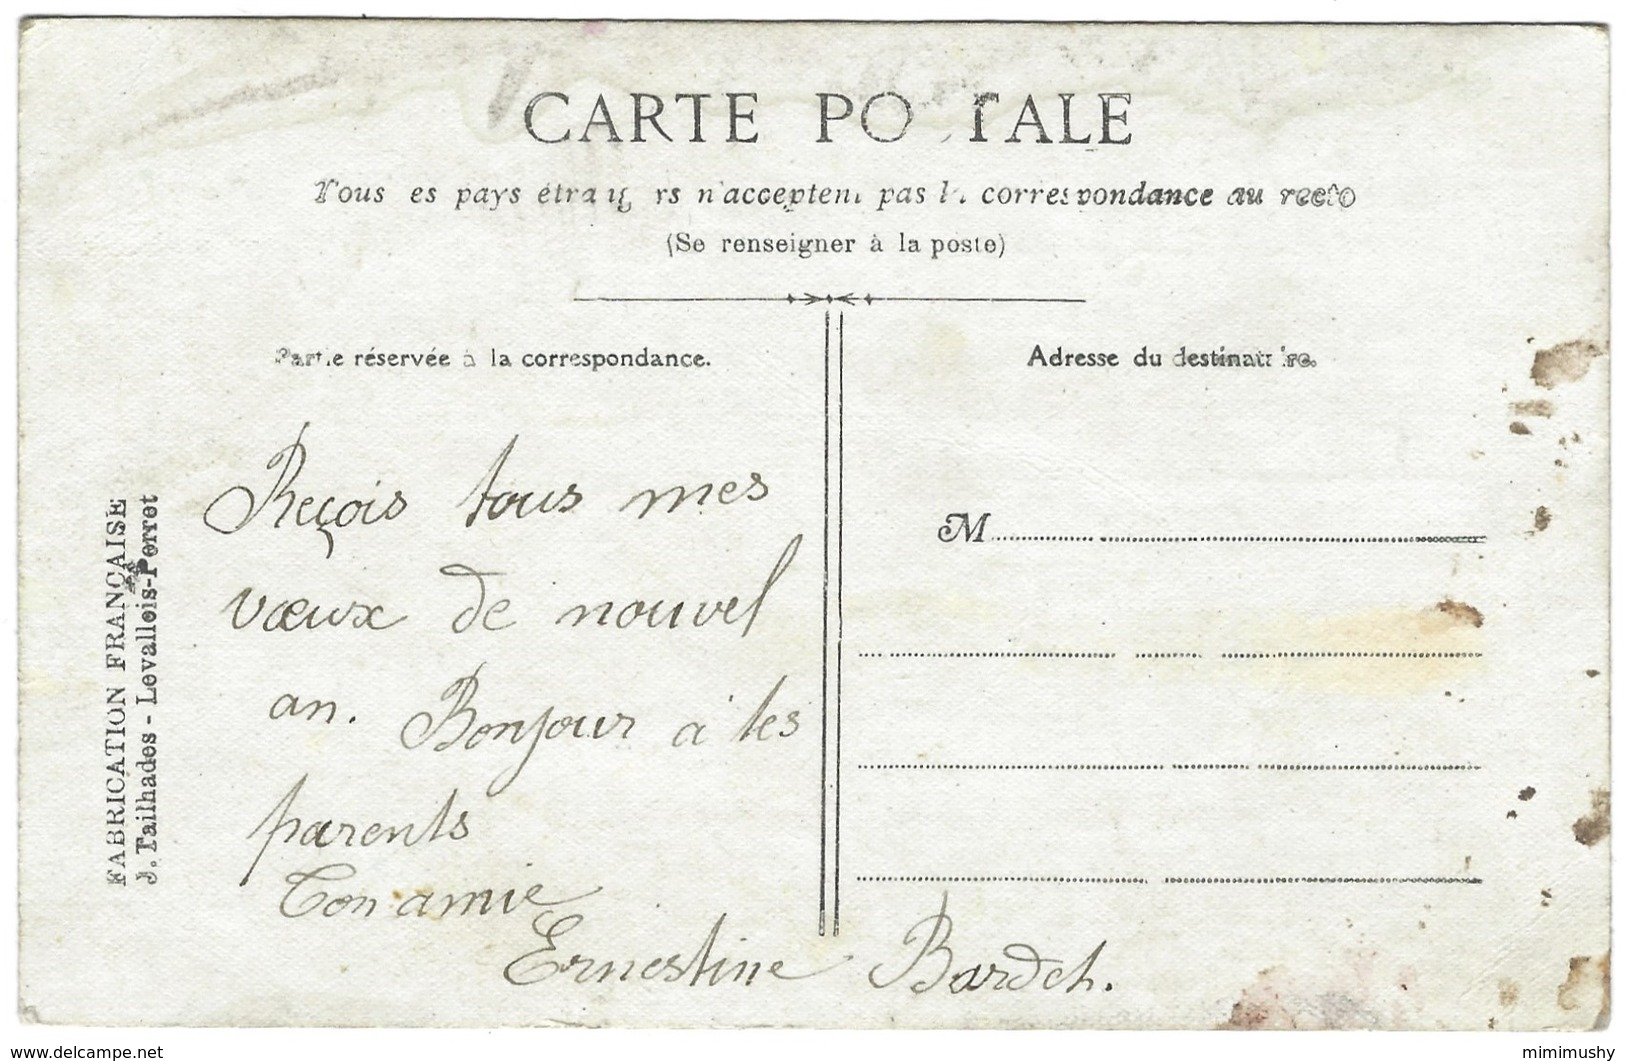 CARTE PO TALE
Tous es pays étrang rs n'acceptent pas l correspondance au recto
(Se renseigner à la poste)
Partie réservée à la correspondance.
Adresse du destinataire.
Reçois tous mes
vœux de nouvel
an. Bonjour à tes
parents
Ton amie
Ernestine Bardet.
M
FABRICATION FRANÇAISE
J. Tailhades - Levallois-Perret
www.delcampe.net
mimimushy